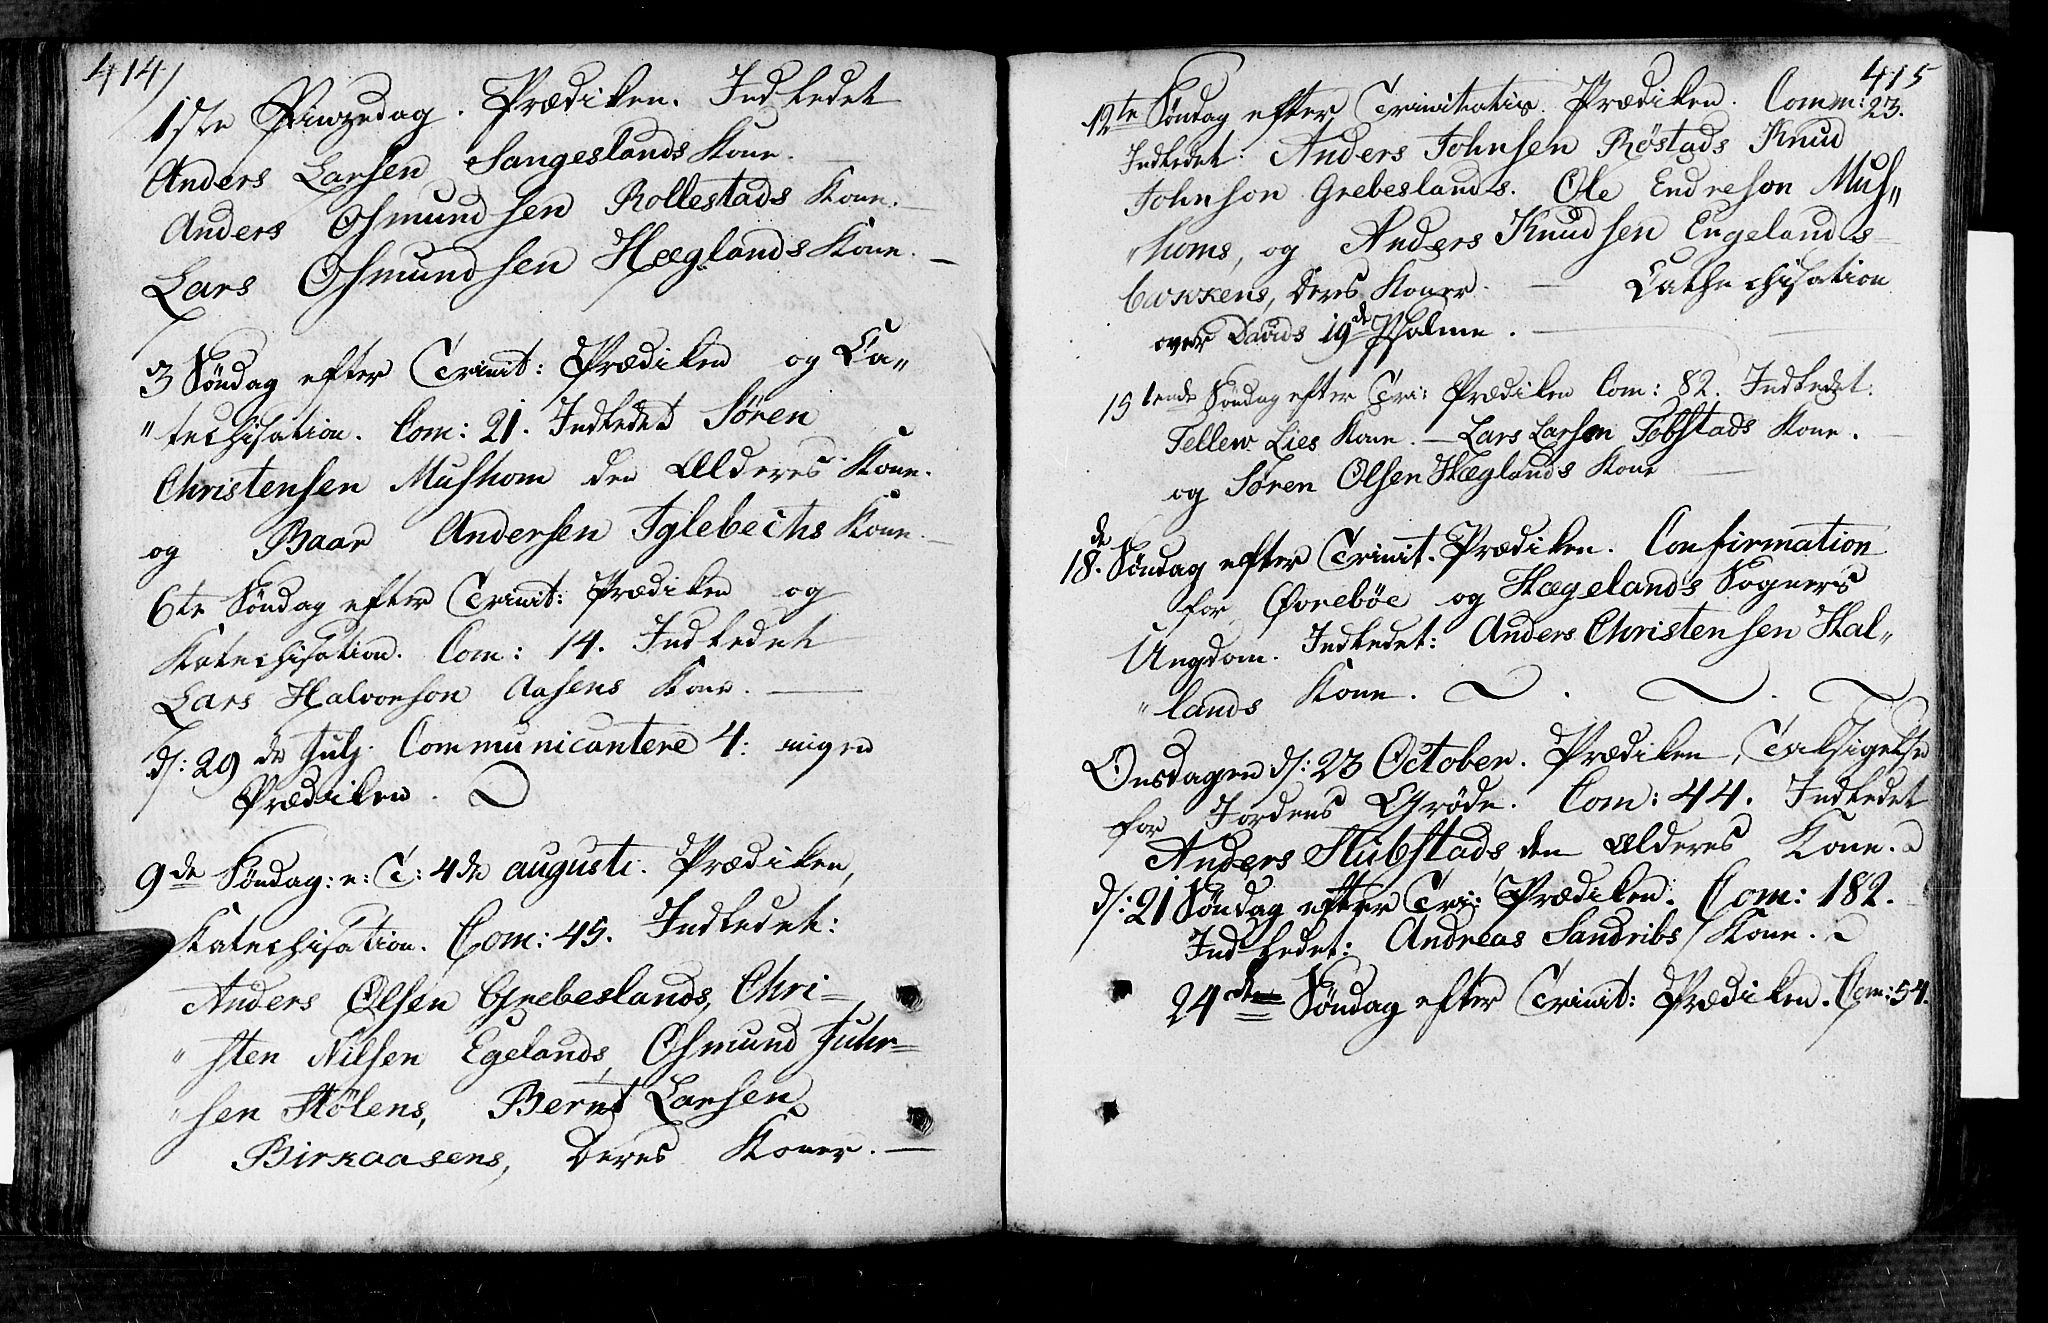 414/
1ste Pinzedag. Prædiken. Indledet
Anders Larsen Sangeslands Kone.
Anders Osmundsen Rollestads Kone.
Lars Osmundsen Hæglands Kone.
3 Søndag efter Trinit: Prædiken og Ca„
„techisation. Com: 21. Indledet Søren
Christensen Mushom den Ælderes Kone.
og Baar Andersen Iglebechs Kone.
6te Søndag efter Trinit: Prædiken og
Katechisation. Com: 14. Indledet
Lars Halvorson Aasens Kone.
d: 29de Julj. Communicantere 4: ingen
Prædiken.
9de Søndag: e: T: 4de augusti. Prædiken,
Katechisation. Com: 45. Indledet:
Anders Olsen Grebeslands, Chri-
„sten Nilsen Egelands, Osmund Juhr=
„sen Hølens, Bernt Larsen
Birkaasens, deres Koner.
415
12te Søndag efter Trinitatis. Prædiken. Comm: 23.
Indledet: Anders Johnsen Röstads Knud
Johnson Grebeslands. Ole Endreson Mus„
„homs, og Anders Knudsen Engelands
bakkens, deres Koner. Cathechisation
over Davids 19de Psalme.
15tende Søndag efter Tri: Prædiken Com: 82. Indledet:
Tellew Lies Kone. Lars Larsen Tobstads Kone.
og Søren Olsen Hæglands Kone
18.de Søndag efter Trinit. Prædiken. Confirmation
for Øvrebøe og Hægelands Sogners
Ungdom. Indledet: Anders Christensen Hal„
„lands Kone.
Onsdagen d: 23 October. Prædiken, Taksigelse
for Jordens Grøde. Com: 44. Indledet
Anders Stubstads den Ælderes Kone.
d: 21 Søndag efter Tri: Prædiken. Com: 182.
Indledet: Andreas Sandribs Kone.
24de Søndag efter Trinit: Prædiken. Com: 54.